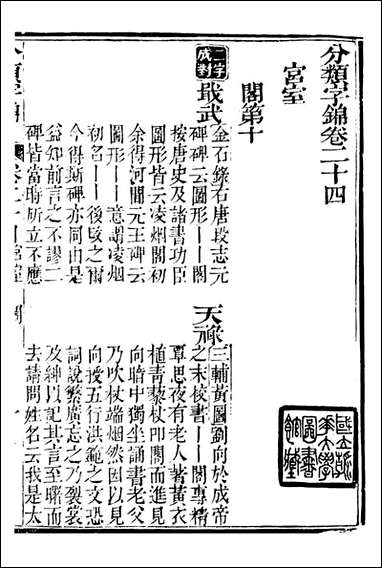 分類字錦卷二十四
宮室
閣第十
二字成對
戢武
金石錄右唐段志元
碑碑云圖形——閣
按唐史及諸書功臣
圖形皆云凌烟閣初
余得河閒元王碑云
圖形——意謂凌烟
初名——後改之爾
今得斯碑亦同由是
益知前言之不謬二
碑皆當時所立不應
天祿
三輔黃圖劉向於成帝
之末校書——閣專精
覃思夜有老人著黃衣
植青藜杖叩閣而進見
向暗中獨坐誦書老父
乃吹杖端烟然因以見
向授五行洪範之文恐
詞說繁廣忘之乃裂裳
及紳以記其言至曙而
去請問姓名云我是太
國立清華大學圖書館藏